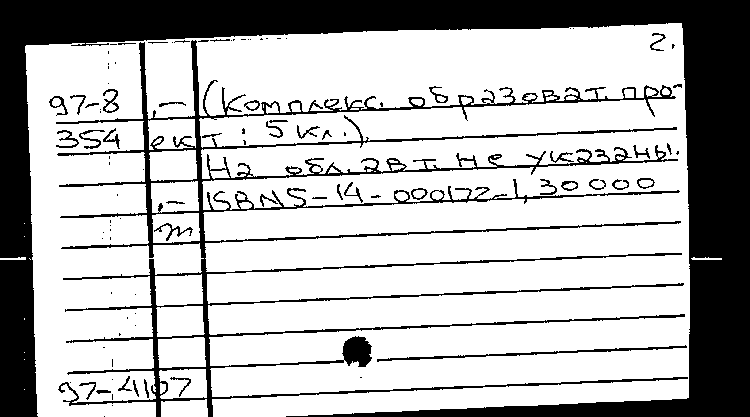 2.
97-8 .– (Комплекс. образоват. про-
354 ект : 5 кл.).
На обл. авт. не указаны.
.– ISBN 5-14-000172-1, 30 000
т
97-4107